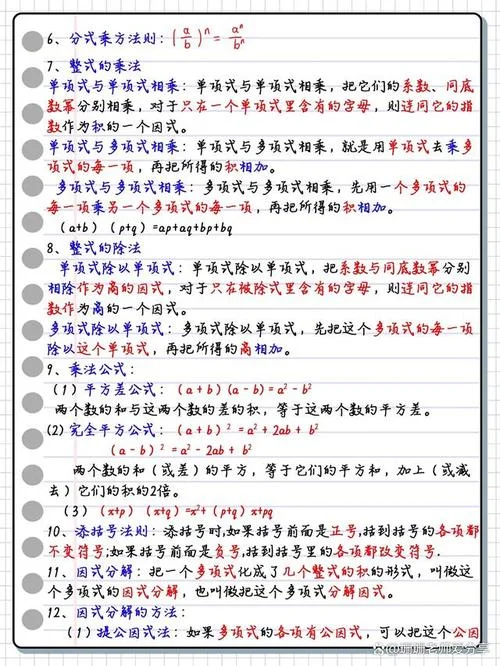 6、分式乘方法则：(a/b)ⁿ = aⁿ/bⁿ
7、整式的乘法
单项式与单项式相乘：单项式与单项式相乘，把它们的系数、同底
数幂分别相乘，对于只在一个单项式里含有的字母，则连同它的指
数作为积的一个因式。
单项式与多项式相乘：单项式与多项式相乘，就是用单项式去乘多
项式的每一项，再把所得的积相加。
多项式与多项式相乘：多项式与多项式相乘，先用一个多项式的
每一项乘另一个多项式的每一项，再把所得的积相加。
(a+b) (p+q) =ap+aq+bp+bq
8、整式的除法
单项式除以单项式：单项式除以单项式，把系数与同底数幂分别
相除作为商的因式，对于只在被除式里含有的字母，则连同它的指
数作为商的一个因式。
多项式除以单项式：多项式除以单项式，先把这个多项式的每一项
除以这个单项式，再把所得的商相加。
9、乘法公式：
(1) 平方差公式：(a+b)(a-b)=a²-b²
两个数的和与这两个数的差的积，等于这两个数的平方差。
(2) 完全平方公式：(a+b)²=a²+2ab+b²
(a-b)²=a²-2ab+b²
两个数的和（或差）的平方，等于它们的平方和，加上（或减
去）它们的积的2倍。
(3) (x+p) (x+q)=x²+(p+q)x+pq
10、添括号法则：添括号时,如果括号前面是正号,括到括号的各项都
不变符号;如果括号前面是负号,括到括号里的各项都改变符号.
11、因式分解：把一个多项式化成了几个整式的积的形式，叫做这
个多项式的因式分解，也叫做把这个多项式分解因式。
12、因式分解的方法：
(1) 提公因式法：如果多项式的各项有公因式，可以把这个公因